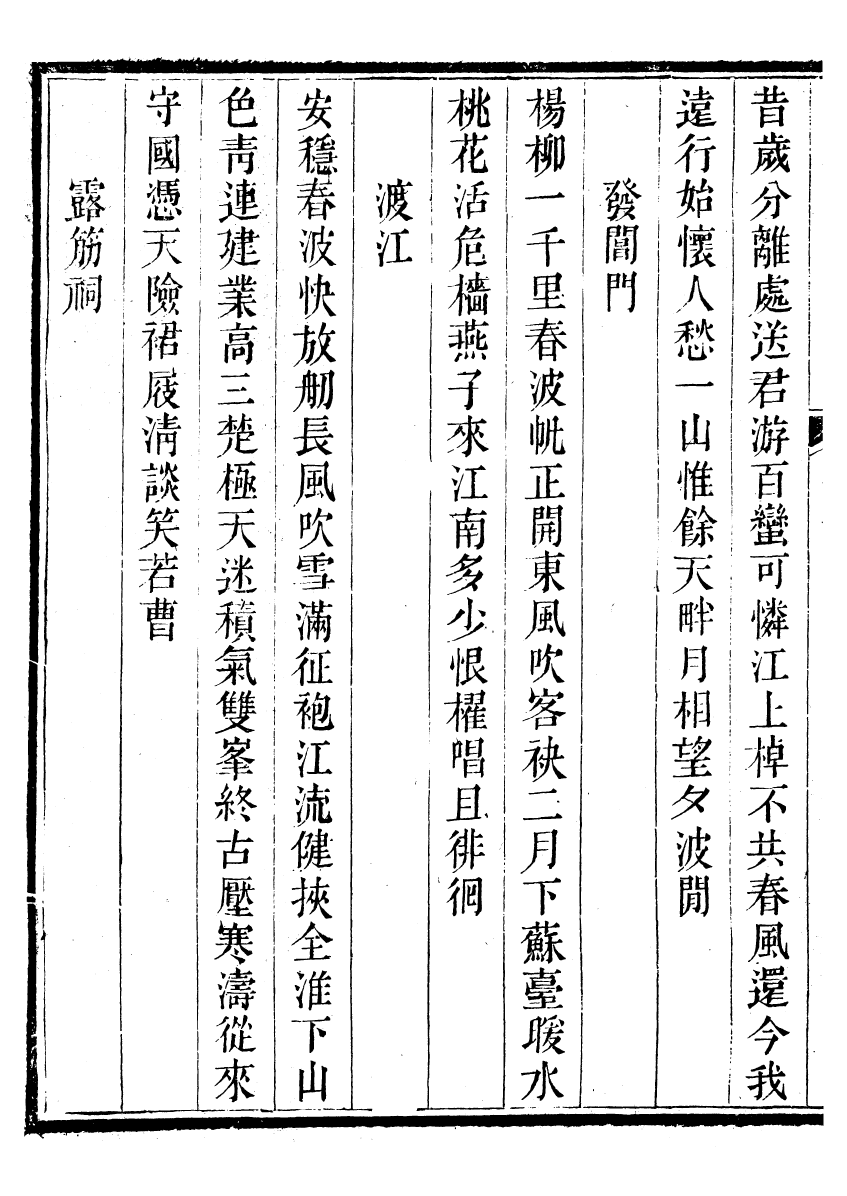 昔歲分離處送君游百蠻可憐江上棹不共春風還今我
遠行始懷人愁一山惟餘天畔月相望夕波閒
發閶門
楊柳一千里春波帆正開東風吹客袂二月下蘇臺暖水
桃花活危檣燕子來江南多少恨櫂唱且徘徊
渡江
安穩春波快放舠長風吹雪滿征袍江流健挾全淮下山
色靑連建業高三楚極天迷積氣雙峯終古壓寒濤從來
守國憑天險裙屐淸談笑若曹
露筋祠